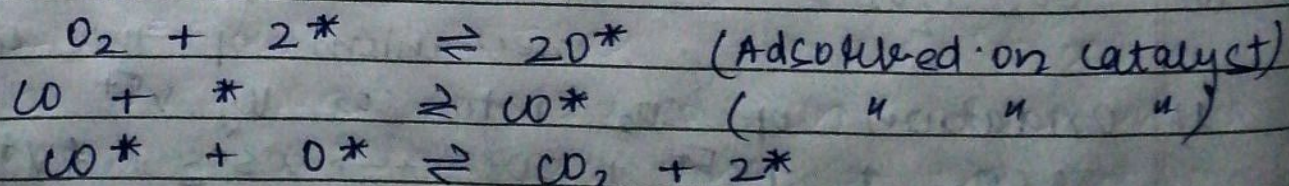 O₂ + 2* ⇌ 2O* (Adsorbed on catalyst)
CO + * ⇌ CO* ( " " " )
CO* + O* ⇌ CO₂ + 2*